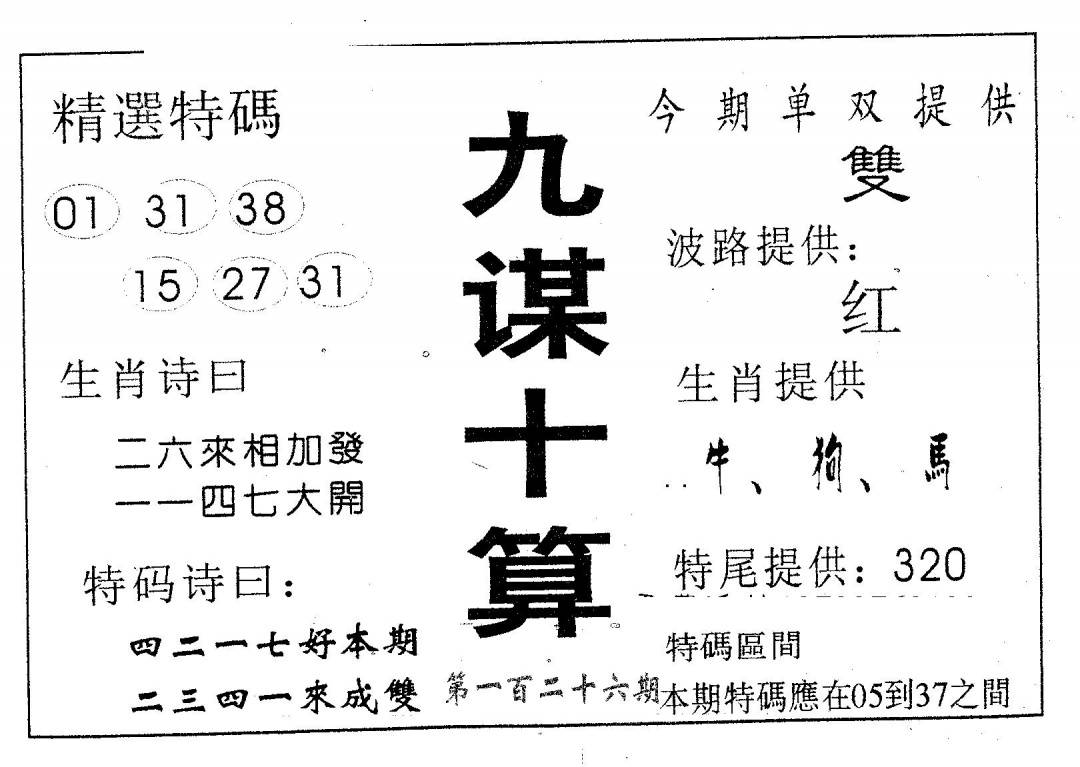 精選特碼
01 31 38
15 27 31
生肖诗曰
二六來相加發
一一四七大開
特码诗曰：
四二一七好本期
二三四一來成雙
九谋十算
第一百二十六期
今期单双提供
雙
波路提供：
红
生肖提供
牛、狗、馬
特尾提供：320
特碼區間
本期特碼應在05到37之間